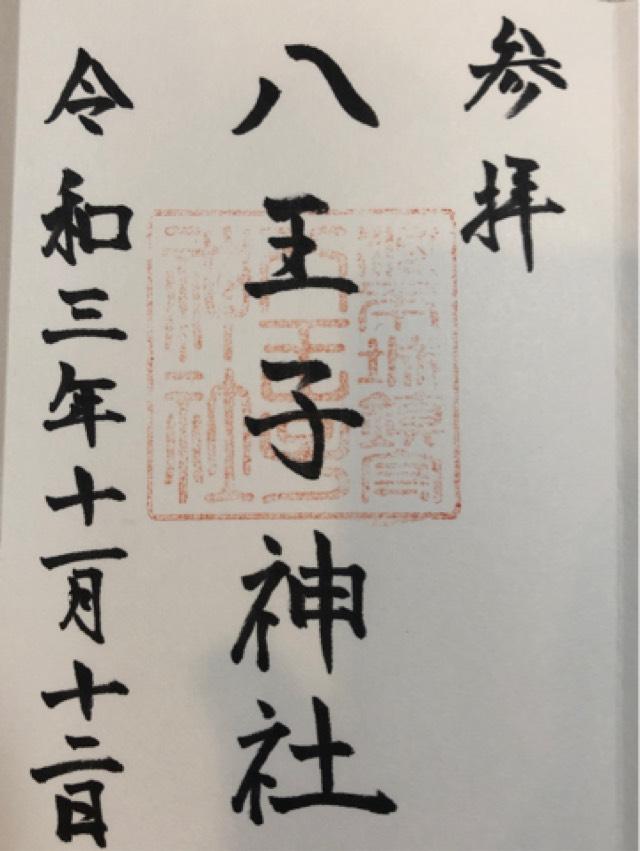 参拝
八王子神社
令和三年十一月十二日